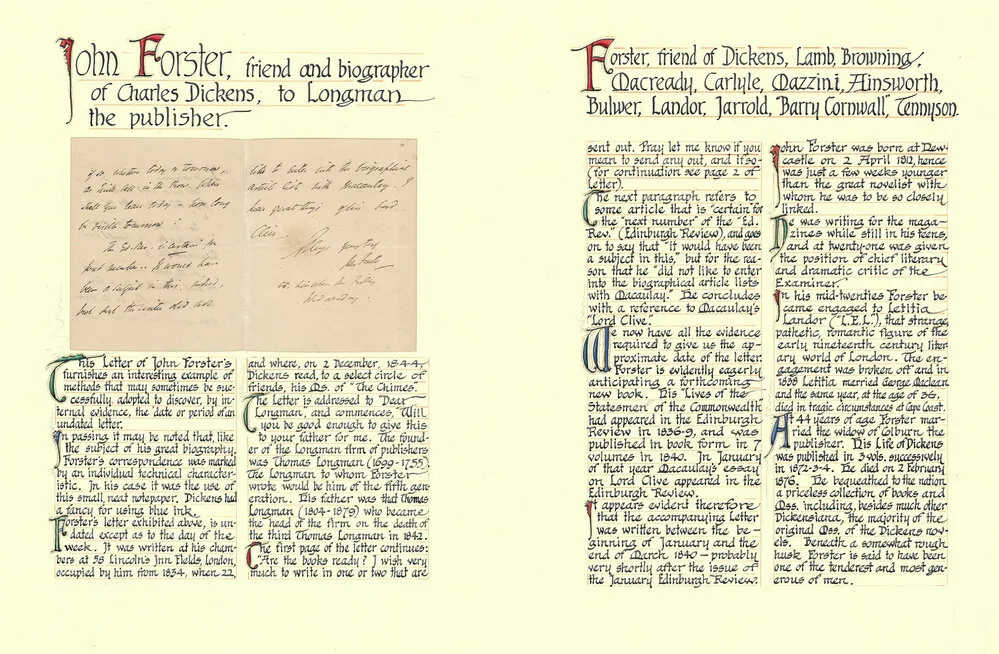 John Forster, friend and biographer
of Charles Dickens, to Longman
the publisher.
yes, whether today or tomorrow,
shall you learn today - how long
The Ed. Rev. is certain for
next number. It would have
been a subject in this, indeed.
but that the writer did not
like to enter into the biographical
artist list with Macaulay. I
Clive.
John Forster
58 Lincoln's Inn Fields
Wednesday.
This Letter of John Forster's
furnishes an interesting example of
methods that may sometimes be suc-
cessfully adopted to discover, by in-
ternal evidence, the date or period of an
undated letter.
In passing it may be noted that, like
the subject of his great biography,
Forster's correspondence was marked
by an individual technical character-
istic. In his case it was the use of
this small, neat notepaper. Dickens had
a fancy for using blue ink.
Forster's letter exhibited above, is un-
dated except as to the day of the
week. It was written at his cham-
bers at 58 Lincoln's Inn Fields, London,
occupied by him from 1834, when 22,
and where, on 2 December, 1844,
Dickens read, to a select circle of
friends, his Ms. of "The Chimes".
The letter is addressed to "Dear
Longman, and commences, "Will
you be good enough to give this
to your father for me. The found-
er of the Longman firm of publishers
was Thomas Longman (1699-1755).
The Longman to whom Forster
wrote would be him of the fifth gen-
eration. His father was that Thomas
Longman (1804-1879) who became
the head of the firm on the death of
the third Thomas Longman in 1842.
The first page of the letter continues:
"Are the books ready? I wish very
much to write in one or two that are
Forster, friend of Dickens, Lamb, Browning,
Macready, Carlyle, Mazzini, Ainsworth,
Bulwer, Landor, Jarrold, "Barry Cornwall," Tennyson.
sent out. Pray let me know if you
mean to send any out, and if so-
(for continuation see page 2 of
letter).
The next paragraph refers to
some article that is "certain" for
the "next number" of the "Ed.
Rev." (Edinburgh Review), and goes
on to say that "it would have been
a subject in this," but for the rea-
son that he "did not like to enter
into the biographical article lists
with Macaulay." He concludes
with a reference to Macaulay's
"Lord Clive."
We now have all the evidence
required to give us the ap-
proximate date of the letter.
Forster is evidently eagerly
anticipating a forthcoming
new book. His "Lives of the
Statesmen of the Commonwealth"
had appeared in the Edinburgh
Review in 1836-9, and was
published in book form in 7
volumes in 1840. In January
of that year Macaulay's essay
on Lord Clive appeared in the
Edinburgh Review.
It appears evident therefore
that the accompanying Letter
was written between the be-
ginning of January and the
end of March 1840 - probably
very shortly after the issue of
the January Edinburgh Review.
John Forster was born at New-
castle on 2 April 1812, hence
was just a few weeks younger
than the great novelist with
whom he was to be so closely
linked.
He was writing for the maga-
zines while still in his teens,
and at twenty-one was given
the position of chief literary
and dramatic critic of the
Examiner.
In his mid-twenties Forster be-
came engaged to Letitia
Landor ("L.E.L."), that strange,
pathetic, romantic figure of the
early nineteenth century liter-
ary world of London. The en-
gagement was broken off and in
1838 Letitia married George Maclean
and the same year, at the age of 36,
died in tragic circumstances at Cape Coast.
At 44 years of age Forster mar-
ried the widow of Colburn the
publisher. His Life of Dickens
was published in 3 vols. successively
in 1872-3-4. He died on 2 February
1876. He bequeathed to the nation
a priceless collection of books and
Mss. including, besides much other
Dickensiana, the majority of the
original Mss. of the Dickens nov-
els. Beneath a somewhat rough
husk Forster is said to have been
one of the tenderest and most gen-
erous of men.